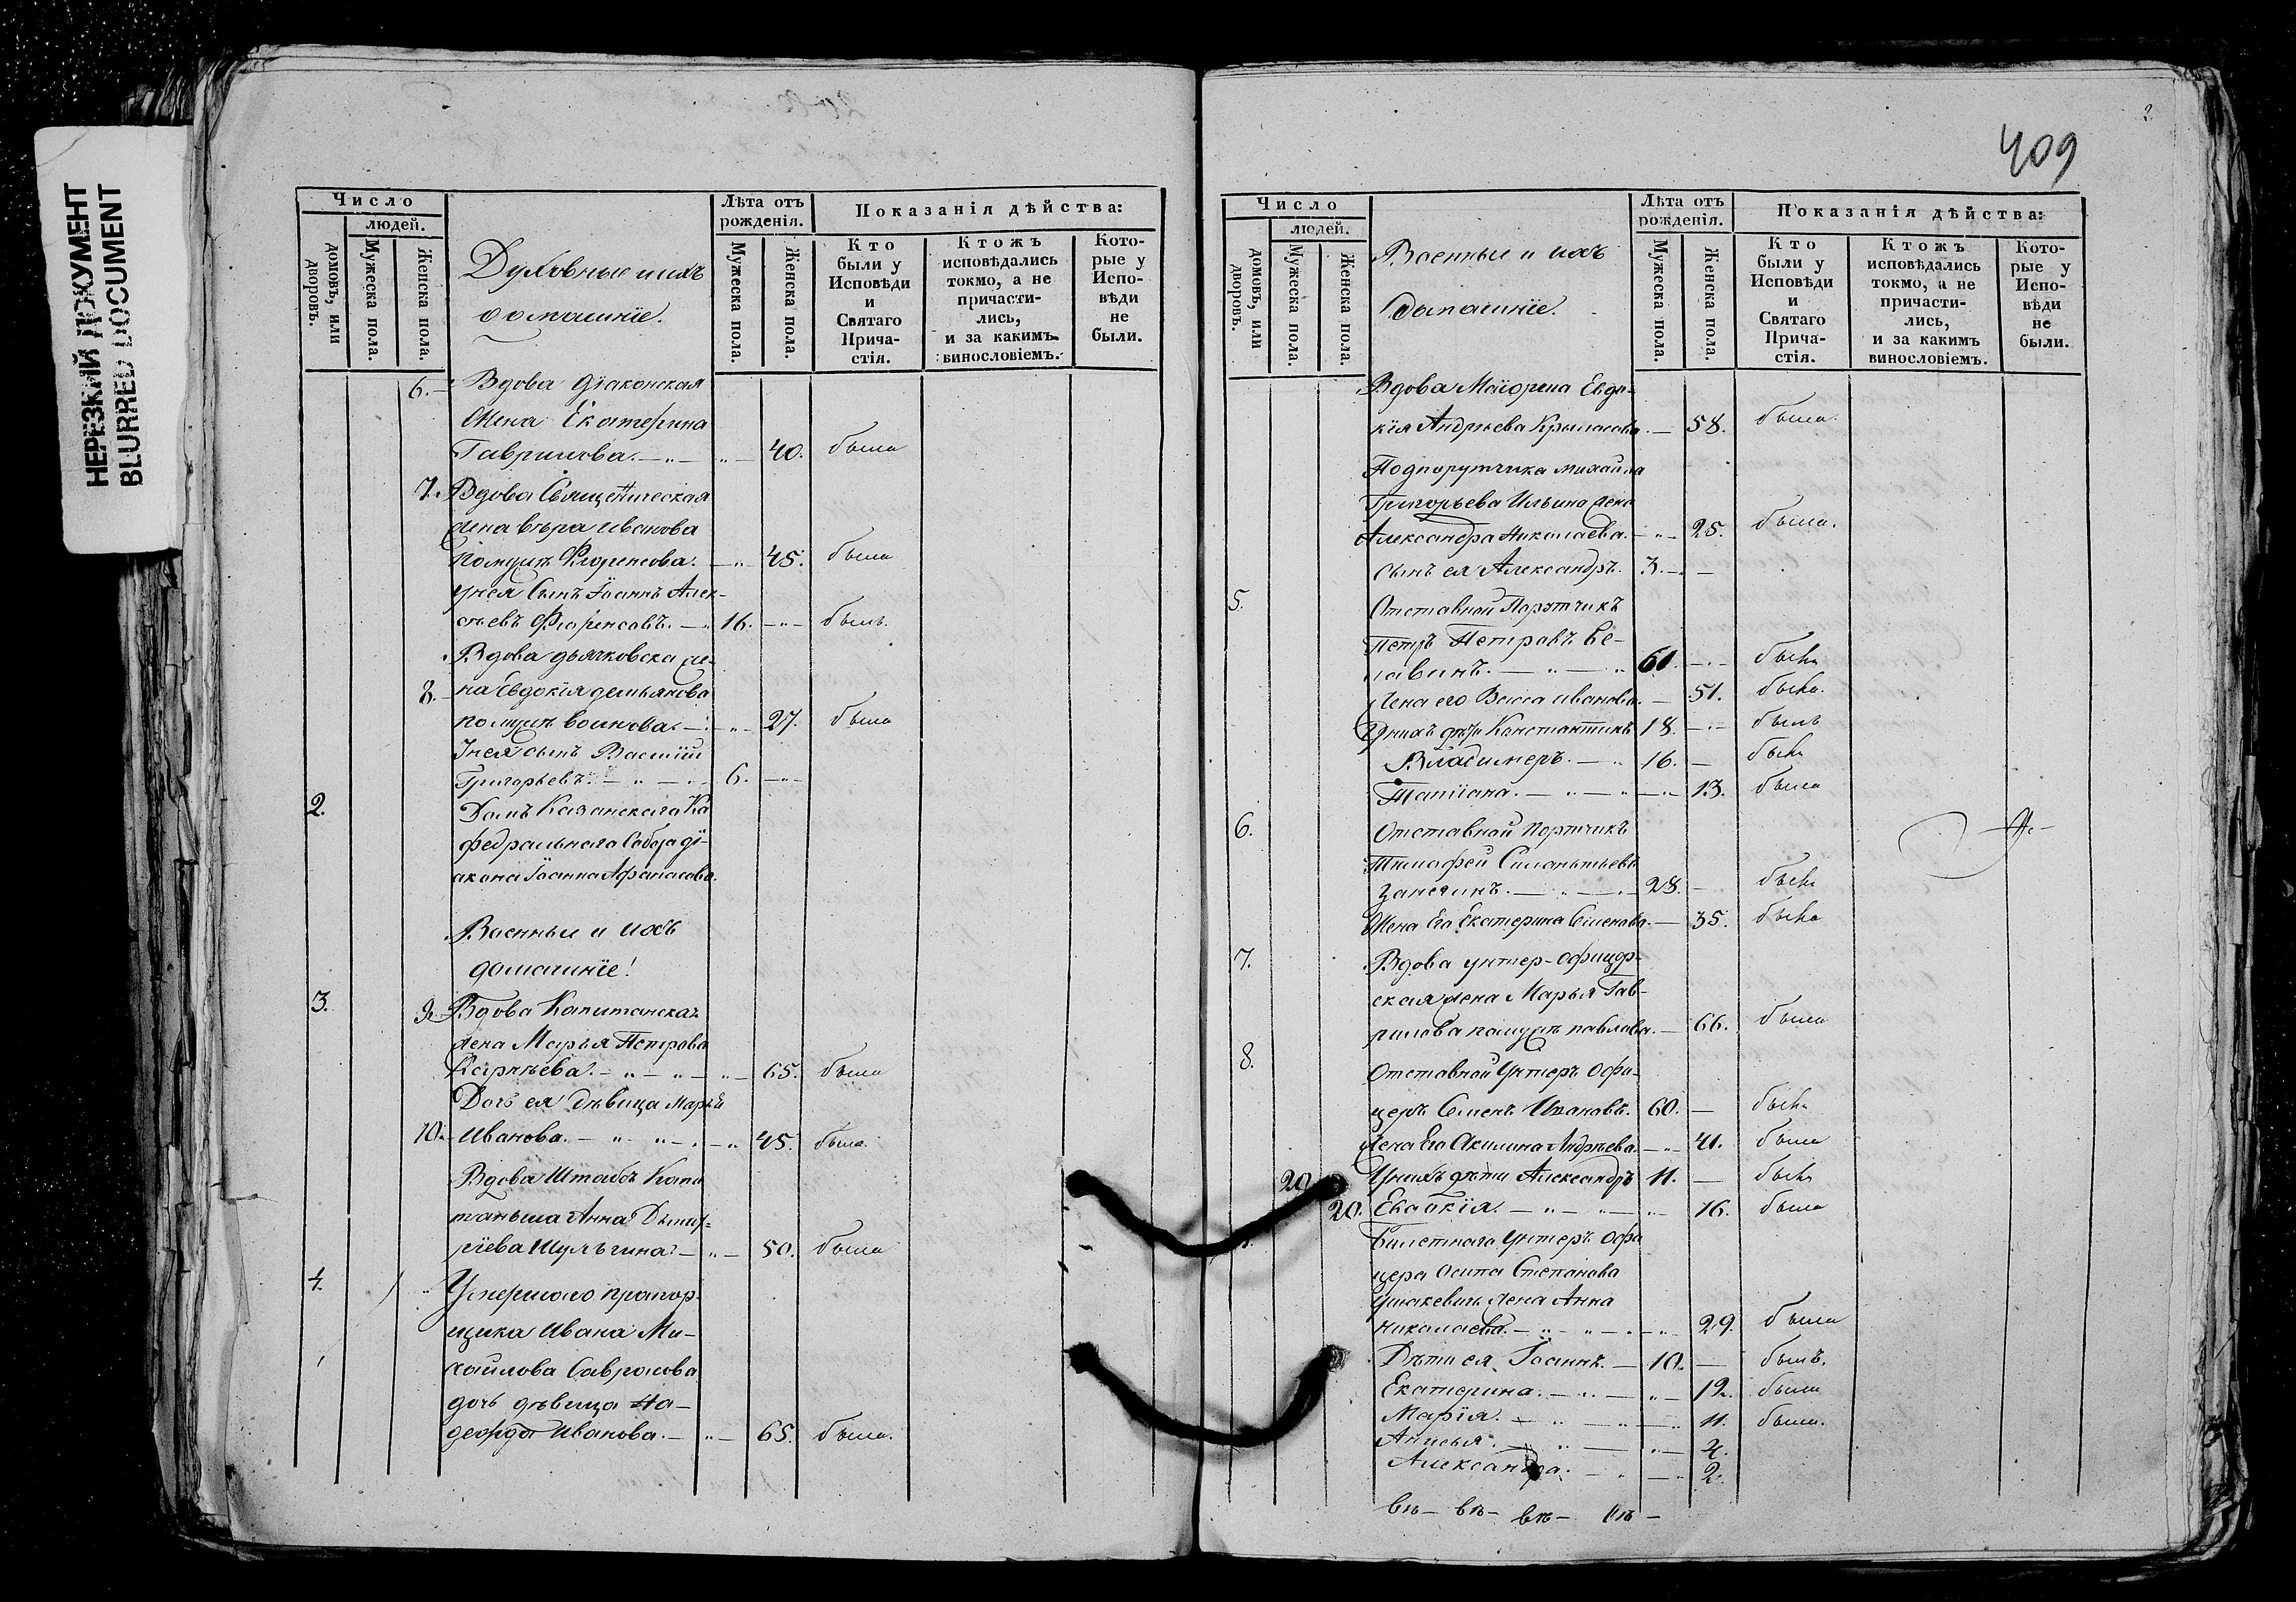 НЕРЕЗКИЙ ДОКУМЕНТ
BLURRED DOCUMENT
Число
людей.
домовъ, или дворовъ.
Мужеска пола.
Женска пола.
Духовные и ихъ
домашніе.
Лѣта отъ рожденія.
Мужеска пола.
Женска пола.
Показанія дѣйства:
Кто были у Исповѣди и Святаго Причастія.
Ктожъ исповѣдались токмо, а не причастились, и за какимъ винословіемъ.
Которые у Исповѣди не были.
6. Вдова Діаконская
жена Екатерина
Гаврилова. 40. была
7. Вдова Священическая
жена вѣра иванова
помужѣ Флоренсова. 45. была
у нея Сынъ Іоаннъ Алек-
сѣевъ Флоренсовъ. 16. былъ
Вдова дьячковска же-
8. на Евдокія демьянова
помужѣ воинова. 27. была
У нея сынъ Василій
Григорьевъ. 6.
2. Домъ Казанскаго Ка
федральнаго Собора ді-
акона Іоанна Афанасова.
Военные и ихъ
домашніе!
3. 9. Вдова Капитанская
жена Марья Петрова
Карпѣева. 65. была
Дочь ея дѣвица Марья
10. Иванова. 45. была
Вдова Штабъ Капи
таньша Анна Дмит-
ріева Шульгина. 50. была
4. Умершаго прапор-
щика Ивана Ми-
хайлова Саврасова
дочь дѣвица На-
дежда Иванова. 65. была.
2
409
Число
людей.
домовъ, или дворовъ.
Мужеска пола.
Женска пола.
Военные и ихъ
домашніе.
Лѣта отъ рожденія.
Мужеска пола.
Женска пола.
Показанія дѣйства:
Кто были у Исповѣди и Святаго Причастія.
Ктожъ исповѣдались токмо, а не причастились, и за какимъ винословіемъ.
Которые у Исповѣди не были.
Вдова Маіорша Евдо-
кія Андреева 58. была.
Подпорутчика михайла
Григорьева Ильина жена
Александра Николаева. 25. была.
сынъ ея Александръ. 3.
5. Отставной Порутчикъ
Петръ Петровъ Бе-
лавинъ. 61. былъ
жена его Васса иванова. 51. была.
У нихъ дѣти Константинъ 18. былъ
Владимеръ. 16. былъ
Татіана. 13. была
6. Отставной Портчикъ
Тимофей Силантьевъ
28. былъ
Жена Его Екатерина Семенова. 35. была
7. Вдова унтер-офицер-
ская жена Марья Гав-
рилова помужѣ павлова. 66. была
8. Отставной Унтеръ Офи-
церъ Семенъ Ивановъ. 60. былъ
жена Его Акилина Андреева. 41. была
20. У нихъ дѣти Александръ 11. былъ
20. Евдокія. 16. была
Билетнаго Унтеръ Офи
цера Осипа Степанова
жена Анна
николаева. 29. была
Дѣти ея Іоаннъ. 10. былъ.
Екатерина. 12. была
Марія. 11. была.
Анисья. 4.
Александра. 2.